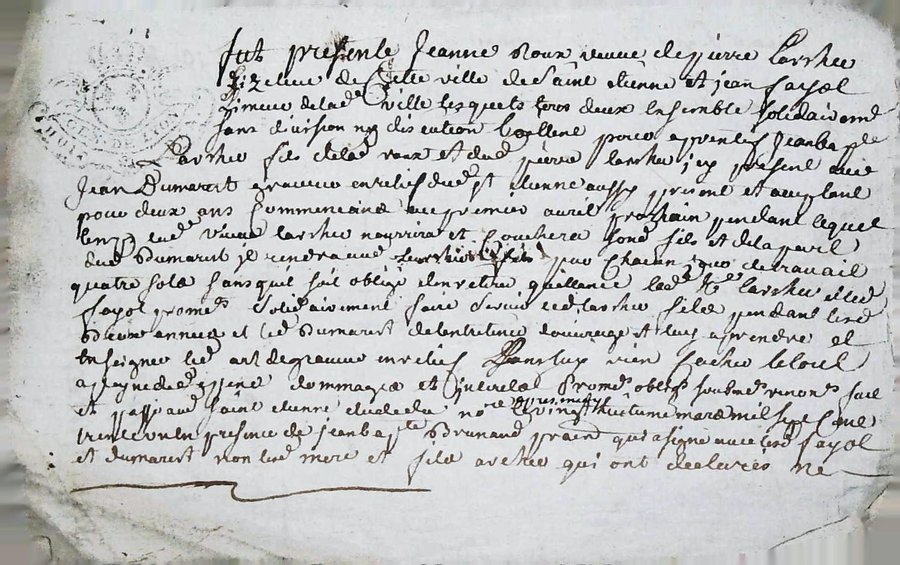 fut presente Jeanne Roux veuve de pierre larcher
de cette ville de Saint etienne et jean fayol
limeur de lad^e ville lesquels tous deux ensemble solidairem^t
sans division ny discution baillent pour apprentif Jeanbap^te
larcher fils de lad^e roux et dud^t pierre larcher icy present a
Jean Dumarest graveur en relief dud^t S^t etienne aussy present et acceptant
pour deux ans Commencant au premier avril prochain pendant lequel
temps lad^e veuve larcher nourrira et Couchera sond^t fils et de la part
dud^t Dumarest il rendra par Chacun jour de travail
quatre sols sans quil soit obligé den retirer quittance lad^e v^e larcher et led^t
fayol promet solidairement faire servir led^t larcher fils pendant lesd^s
Deux années et led^t Dumarest de l'entretenir douvrage et luy aprendre et
enseigner led^t art de graveur en relief sans luy rien Cacher le tout
a payne de tous despens dommages et interets promet^s oblig^s soubmis^s renon^s fait
et passé aud^t saint etienne etude du no^re le vingt huitieme mars mil sept Cent
trente en presence de jeanbap^te Brunand prati^n qui a signé avec lesd^s fayol
et dumarest non lesd^s mere et fils archer qui ont declarés ne